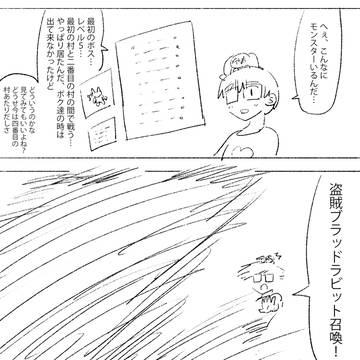 へぇ、こんなに
モンスターいるんだ…
最初のボス…
レベル5…
最初の村と二番目の村の間で戦う…
やっぱり居たんだ、ボク達の時は
出て来なかったけど
どういうのかな
見てみてもいいよね？
どうせ今は四番目の
村あたりだしさ
盗賊ブラッドラビット召喚！